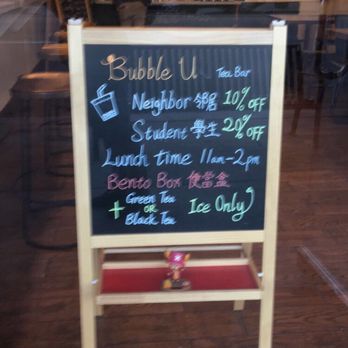 Bubble U Tea Bar
Neighbor 鄰居 10% OFF
Student 學生 20% OFF
Lunch time 11am-2pm
Bento Box 便當盒
+ Green Tea
OR Ice Only
Black Tea